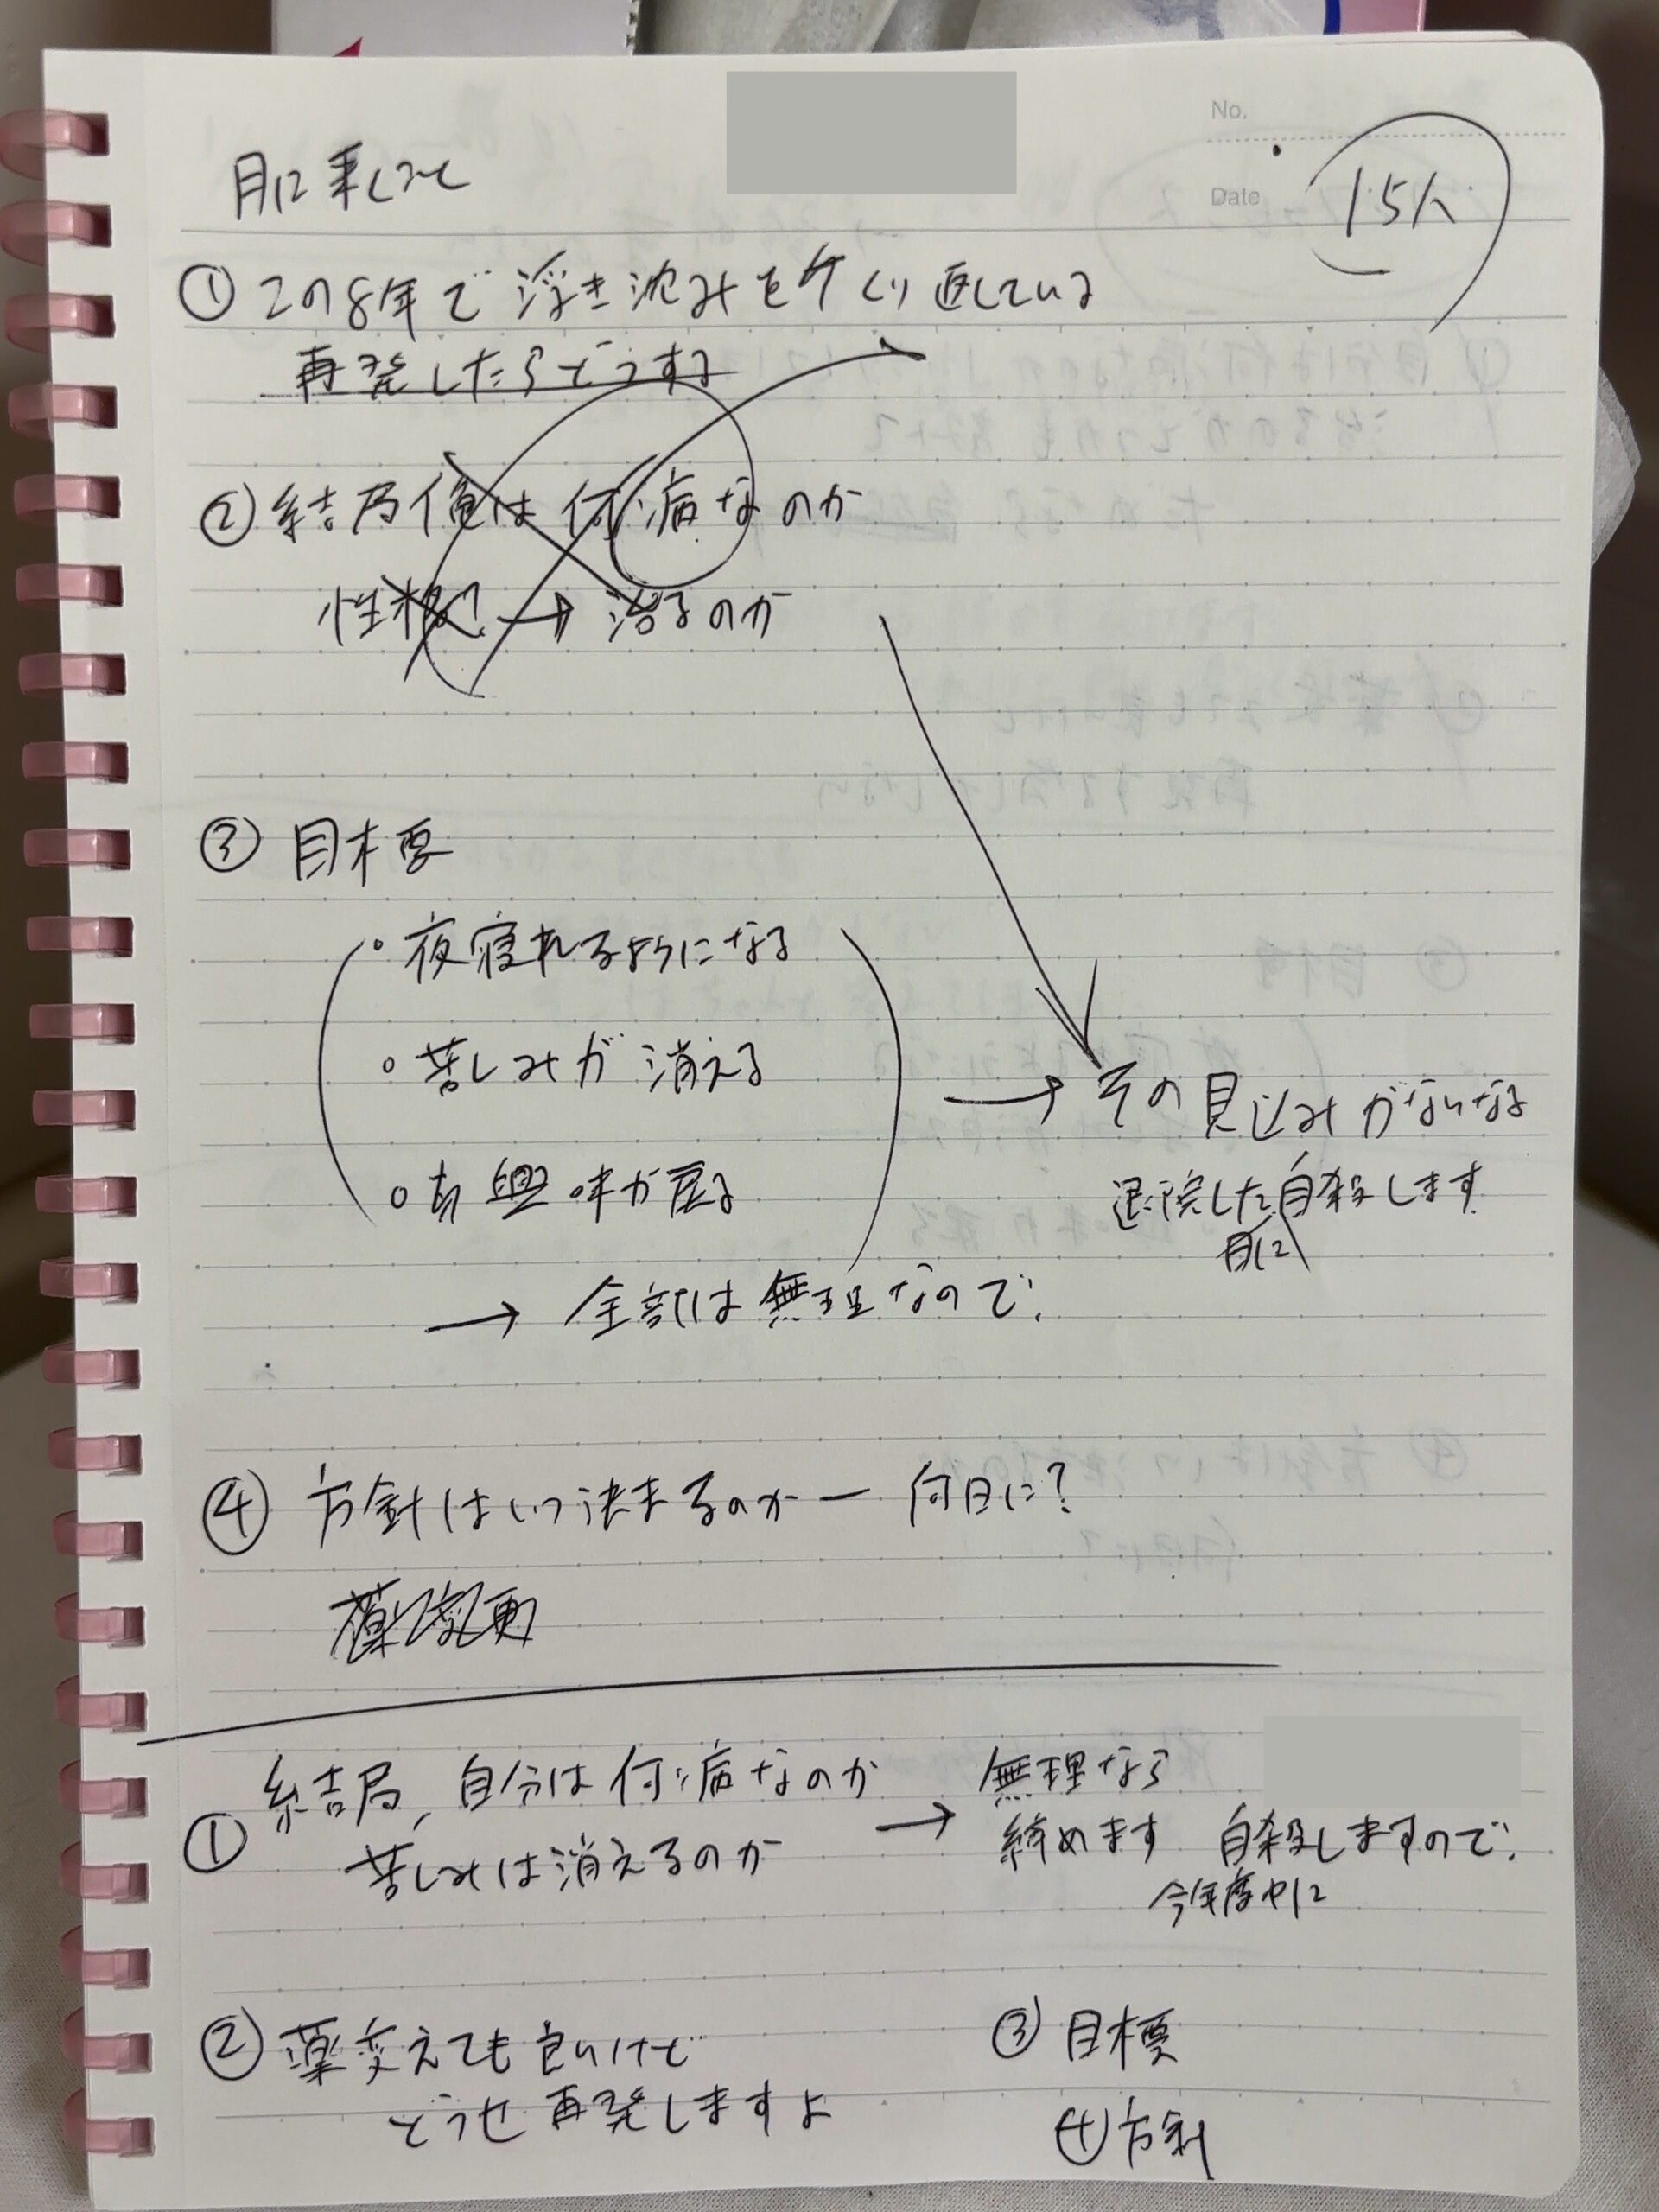 No.
Date
15人
月に乗じて
① この8年で浮き沈みをくり返している
再発したらどうする
② 結局俺は何病なのか
性格 → 治るのか
③ 目標
・夜寝れるようになる
・苦しみが消える
・興味が戻る
→ その見込みがないなら
退院した月に自殺します
→ 全部は無理なので、
④ 方針はいつ決まるのか ー 何日に?
薬変更
① 結局、自分は何病なのか
苦しみは消えるのか
→ 無理なら
諦めます 自殺しますので、
今年度中に
② 薬変えても良いけど
どうせ再発しますよ
③ 目標
④ 方針